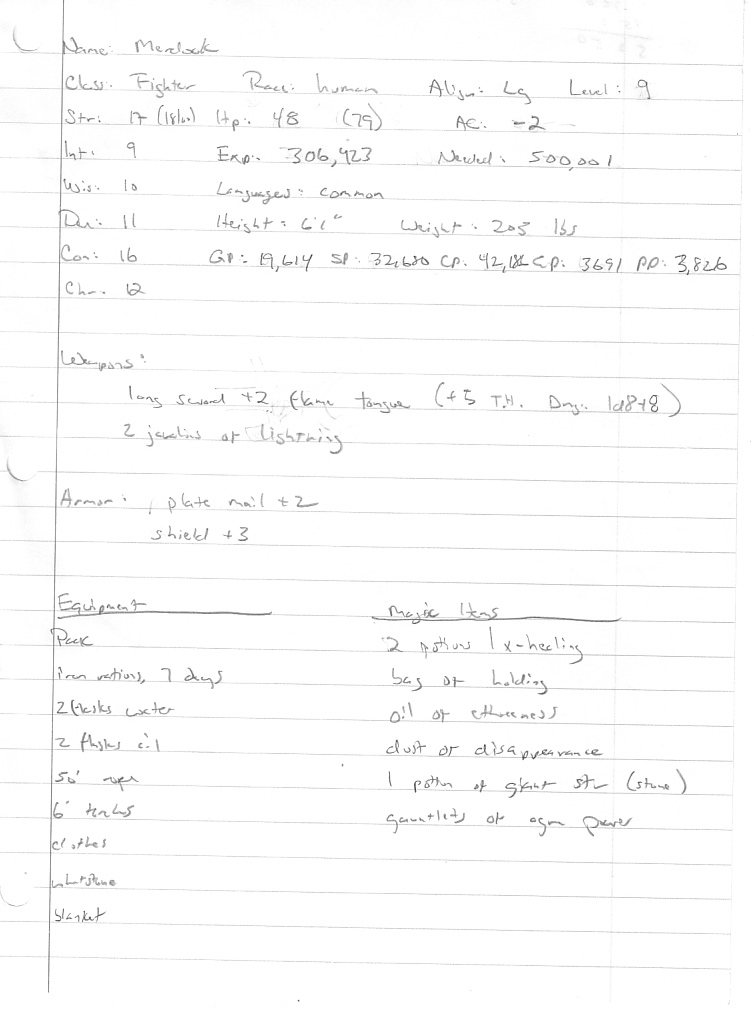 Name: Merdock
Class: Fighter Race: human Align: Lg Level: 9
Str: 17 (18/00) Hp: 48 (79) AC: -2
Int: 9 Exp: 306,423 Needed: 500,001
Wis: 10 Languages: common
Dex: 11 Height: 6'1" Weight: 205 lbs
Con: 16 GP: 19,614 SP: 32,680 CP: EP: 3691 PP: 3,826
Chr: 12
Weapons:
long sword +2, flame tongue (+5 T.H. Dmg: 1d8+8)
2 javelins of lightning
Armor: plate mail +2
shield +3
Equipment Magic Items
Pack 2 potions x-healing
iron rations, 7 days bag of holding
2 flasks water oil of
2 flasks oil dust of disappearance
50' rope 1 potion of giant str (stone)
6 torches gauntlets of ogre power
clothes
whetstone
blanket